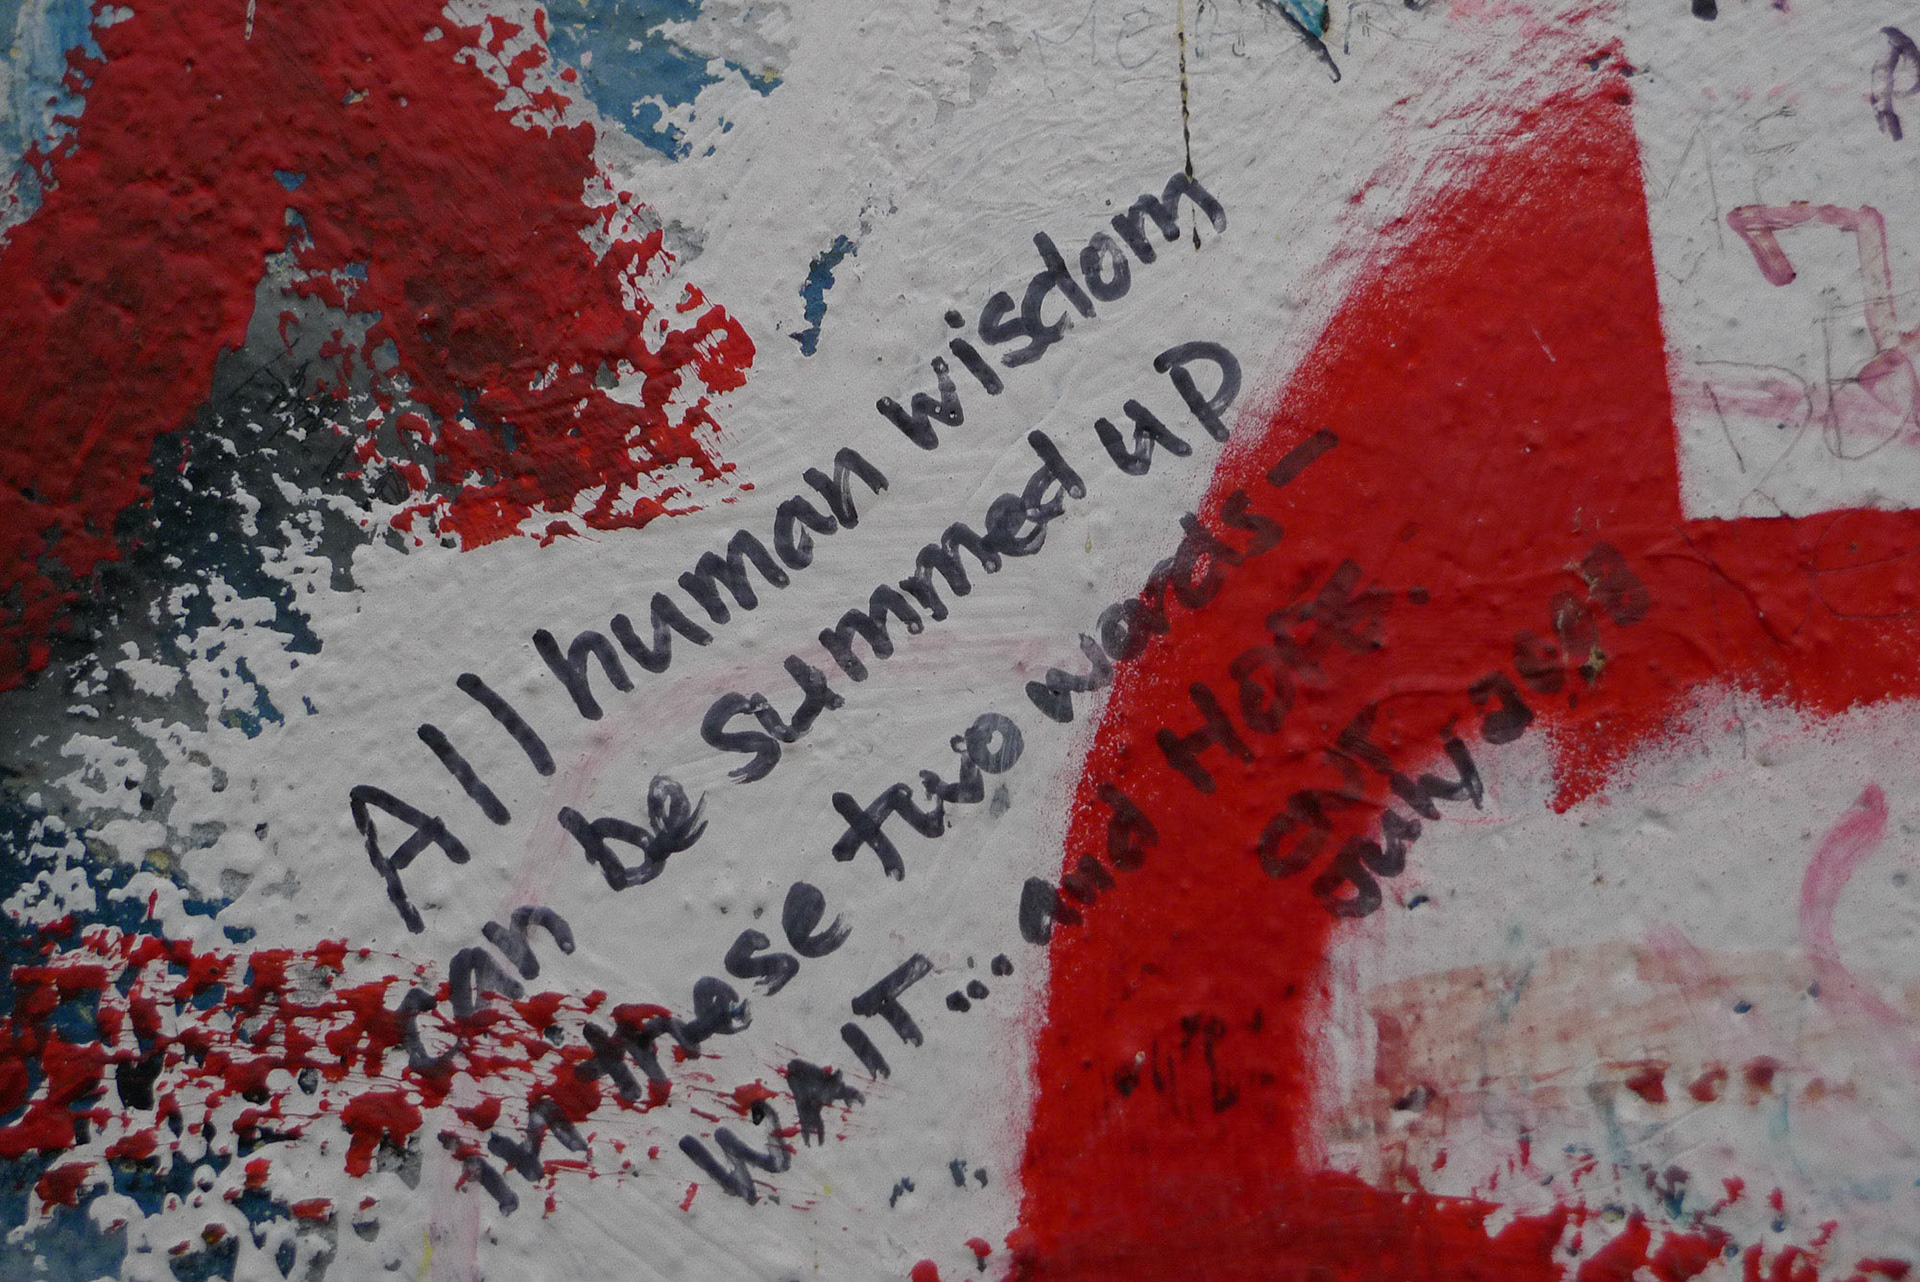 All human wisdom
can be summed up
in these two words -
WAIT... and HOPE.